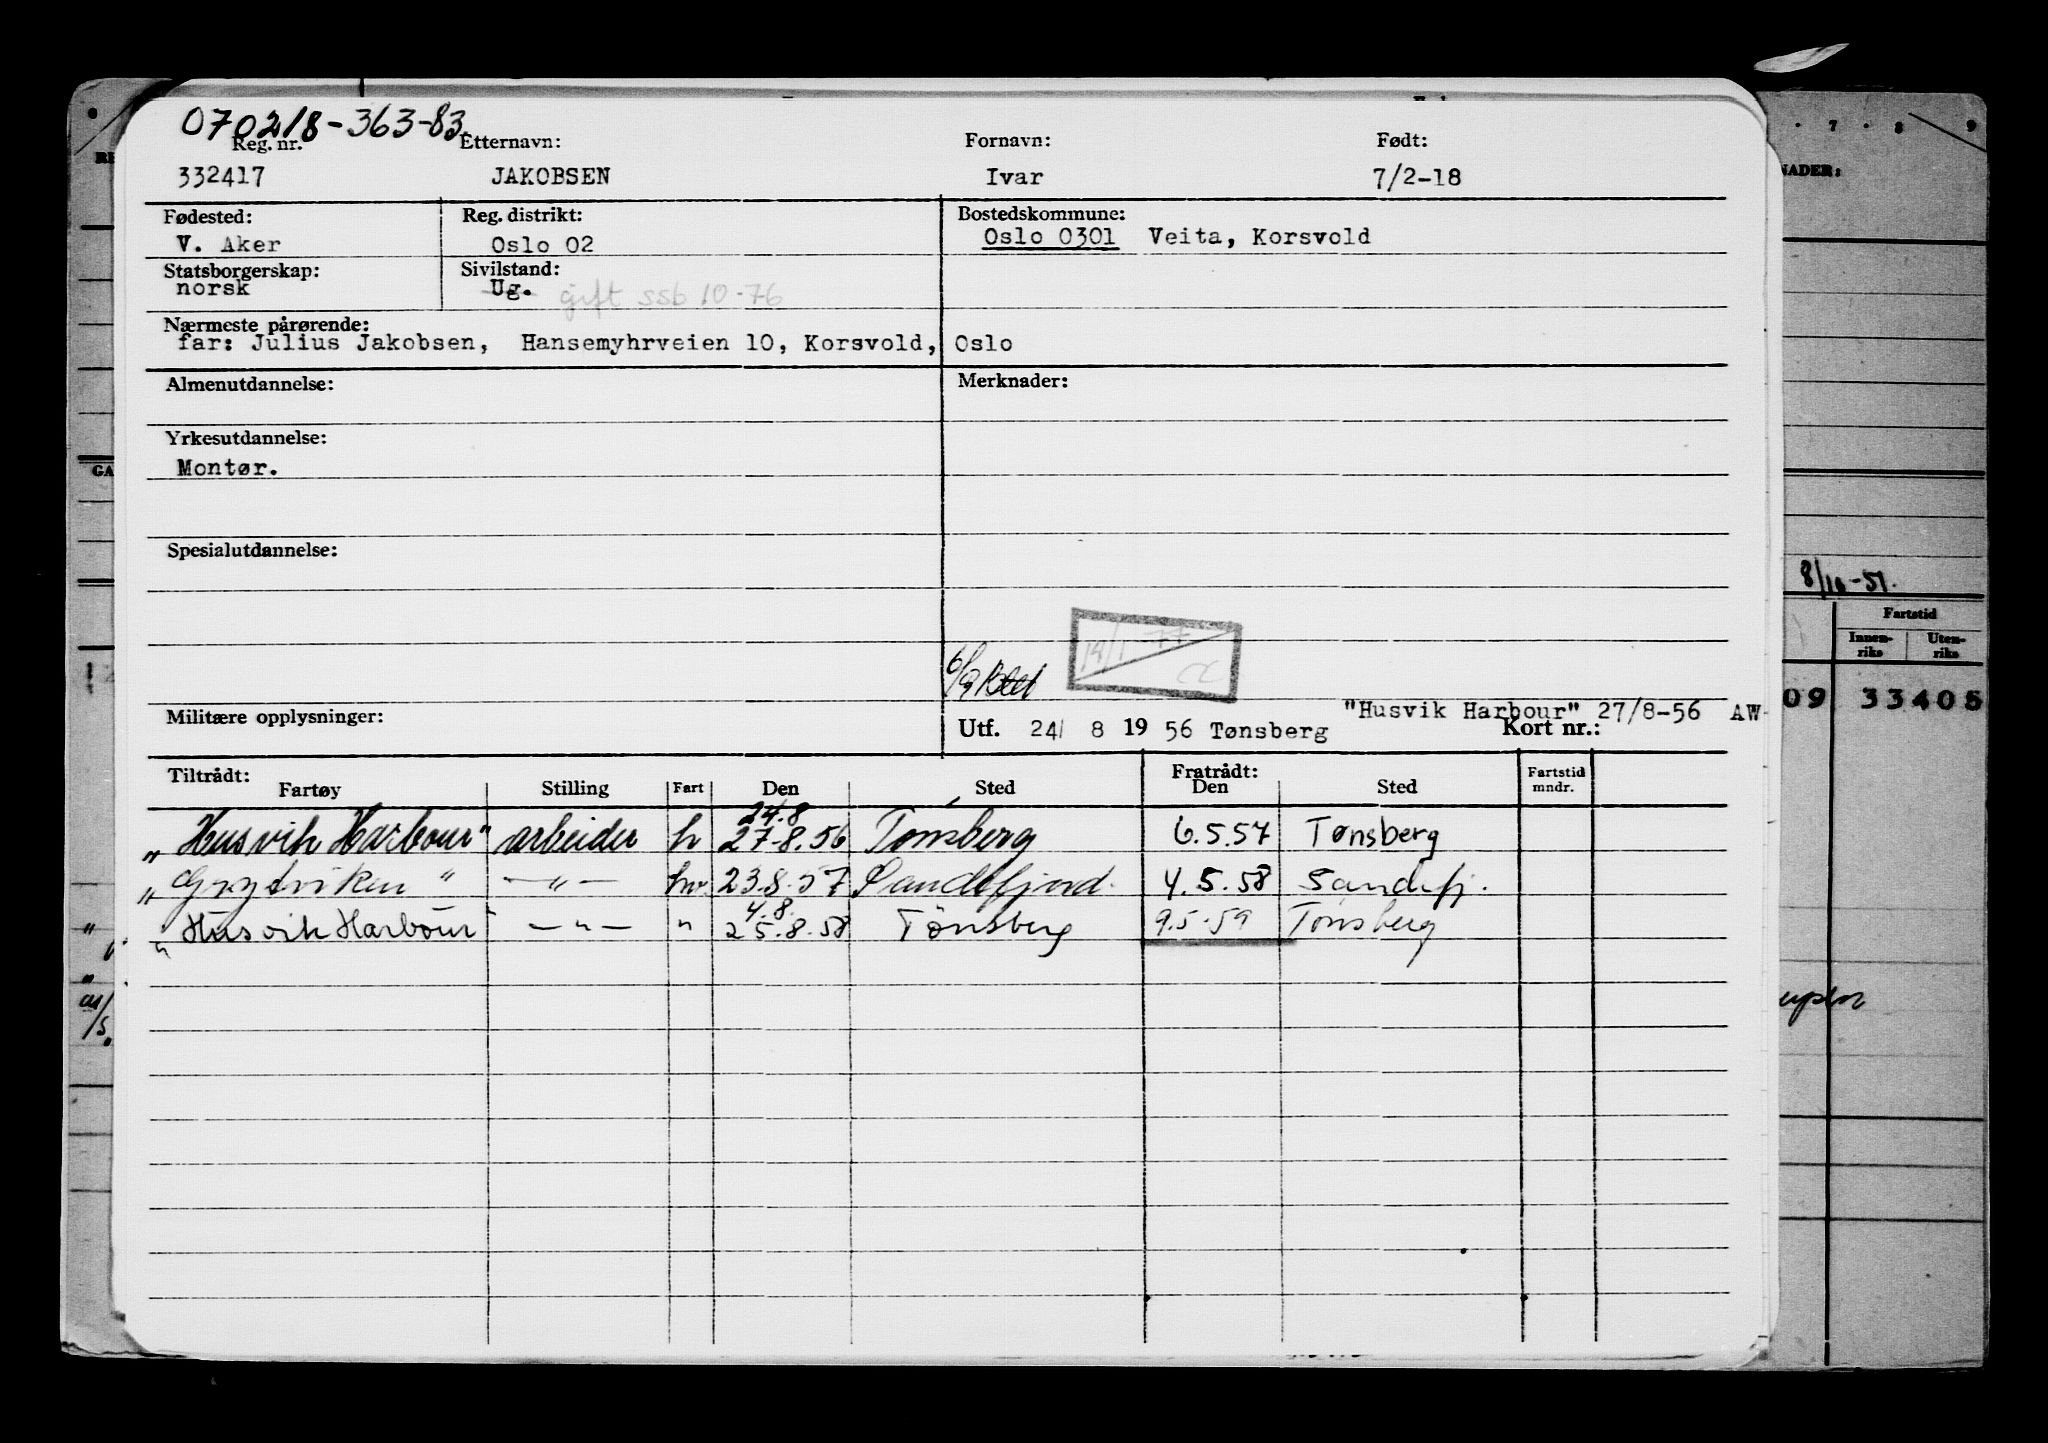 070218-363-83
Reg. nr. Etternavn: Fornavn: Født:
332417 JAKOBSEN Ivar 7/2-18
Fødested: Reg. distrikt: Bostedskommune:
V. Aker Oslo 02 Oslo 0301 Veita, Korsvold
Statsborgerskap: Sivilstand:
norsk Ug. gift ssb 10-76
Nærmeste pårørende:
far: Julius Jakobsen, Hansemyhrveien 10, Korsvold, Oslo
Almenutdannelse: Merknader:
Yrkesutdannelse:
Montør.
Spesialutdannelse:
14/1 77
6/9
Militære opplysninger: "Husvik Harbour" 27/8-56 AW
Utf. 24/ 8 19 56 Tønsberg Kort nr.:
Tiltrådt: Fratrådt:
Fartøy Stilling Fart Den Sted Den Sted Fartstid mndr.
24.8
"Husvik Harbour" arbeider h 27.8.56 Tønsberg 6.5.57 Tønsberg
"Grytviken" —"— hv. 23.8.57 Sandefjord. 4.5.58 Sandefj.
4.8.
"Husvik Harbour" —"— " 25.8.58 Tönsberg 9.5.59 Tønsberg
7 8 9
NADER:
8/10-51.
Fartstid
Innen-riks Uten-riks
09 33405
GA